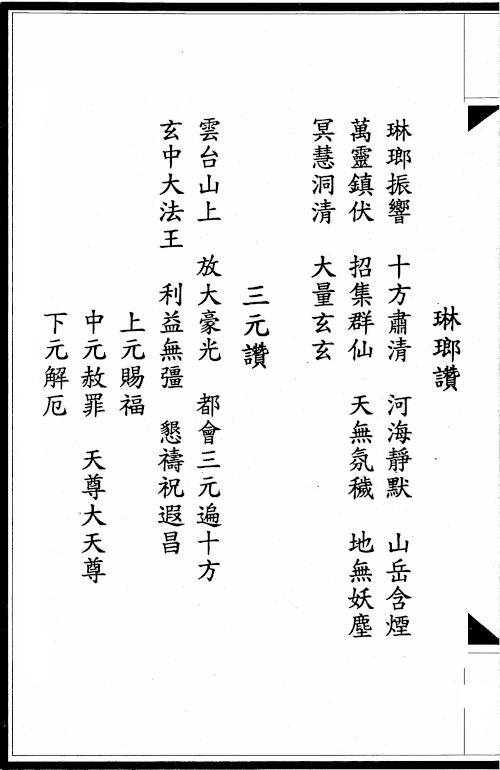 琳瑯讚
琳瑯振響　十方肅清　河海靜默　山岳含煙
萬靈鎮伏　招集群仙　天無氛穢　地無妖塵
冥慧洞清　大量玄玄
三元讚
雲台山上　放大豪光　都會三元遍十方
玄中大法王　利益無彊　懇禱祝遐昌
上元賜福
中元赦罪　天尊大天尊
下元解厄